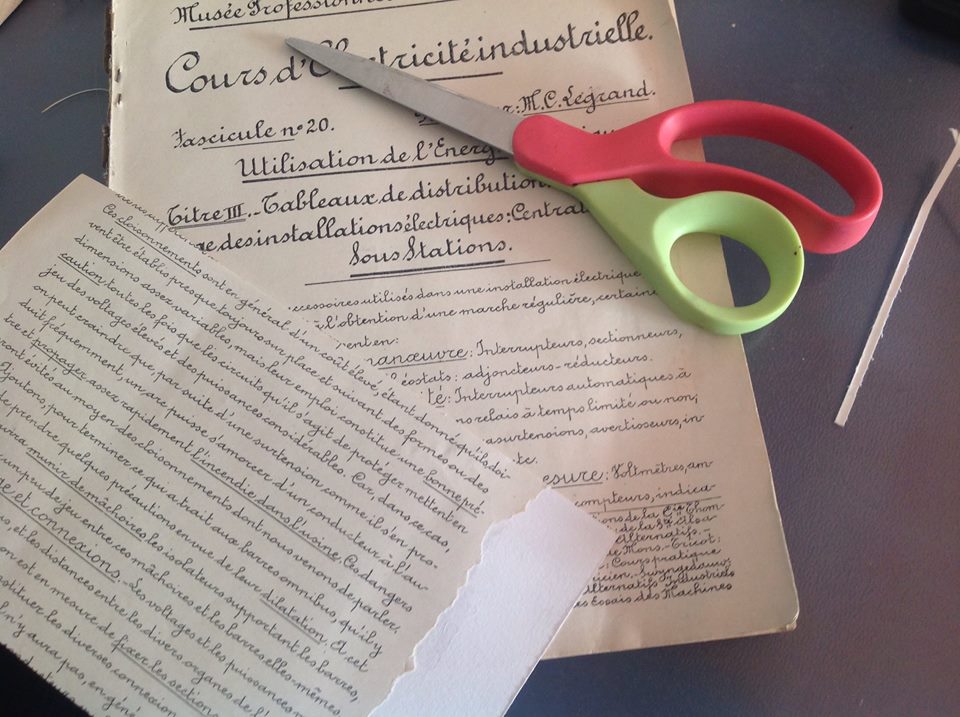 Musée Professionne
Cours d'El ctricité industrielle.
Fascicule n° 20. r: M. C. Legrand.
Utilisation de l'Energ ique
Titre III._Tableaux de distribution.
ge des installations électriques: Central
Sous Stations.
ccessoires utilisés dans une installation électrique
à l'obtention d'une marche régulière, certaine
vent en:
manœuvre: Interrupteurs, sectionneurs,
éostats: adjoncteurs-réducteurs.
té: Interrupteurs automatiques à
relais à temps limité ou non;
surtensions, avertisseurs, in
te.
esure: Voltmètres, am-
compteurs, indica-
tions de la Cie Thom-
Alternatifs.
de Mons._Tricot:
: Cours pratique
Alternatifs Industriels
es Essais des Machines
Ces cloisonnements sont en général d'un coût élevé, étant donné qu'ils doi-
vent être établis presque toujours sur place, et suivant des formes ou des
dimensions assez variables, mais leur emploi constitue une bonne pré-
caution toutes les fois que les circuits qu'il s'agit de protéger mettent en
jeu des voltages élevés et des puissances considérables. Or, dans ce cas,
on peut craindre que, par suite d'une surtension comme il s'en pro-
duit fréquemment, un arc puisse s'amorcer d'un conducteur à l'au-
tre et propager assez rapidement l'incendie dans l'usine. Ces dangers
sont évités au moyen des cloisonnements dont nous venons de parler.
Ajoutons, pour terminer ce qui a trait aux barres omnibus, qu'il y
de prendre quelques précautions en vue de leur dilatation. A cet
aura un peu de jeu entre ces mâchoires et les barres elles-mêmes
munir de mâchoires les isolateurs supportant les barres,
e et connexions._Les voltages et les puissances
s, et les distances entre les divers organes de l'
on est en mesure de fixer les sections
stituer les diverses connexion
l n'y aura pas, en géné